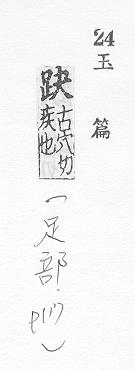 24
玉篇
趹
古穴切
疾也
(足部·P117)